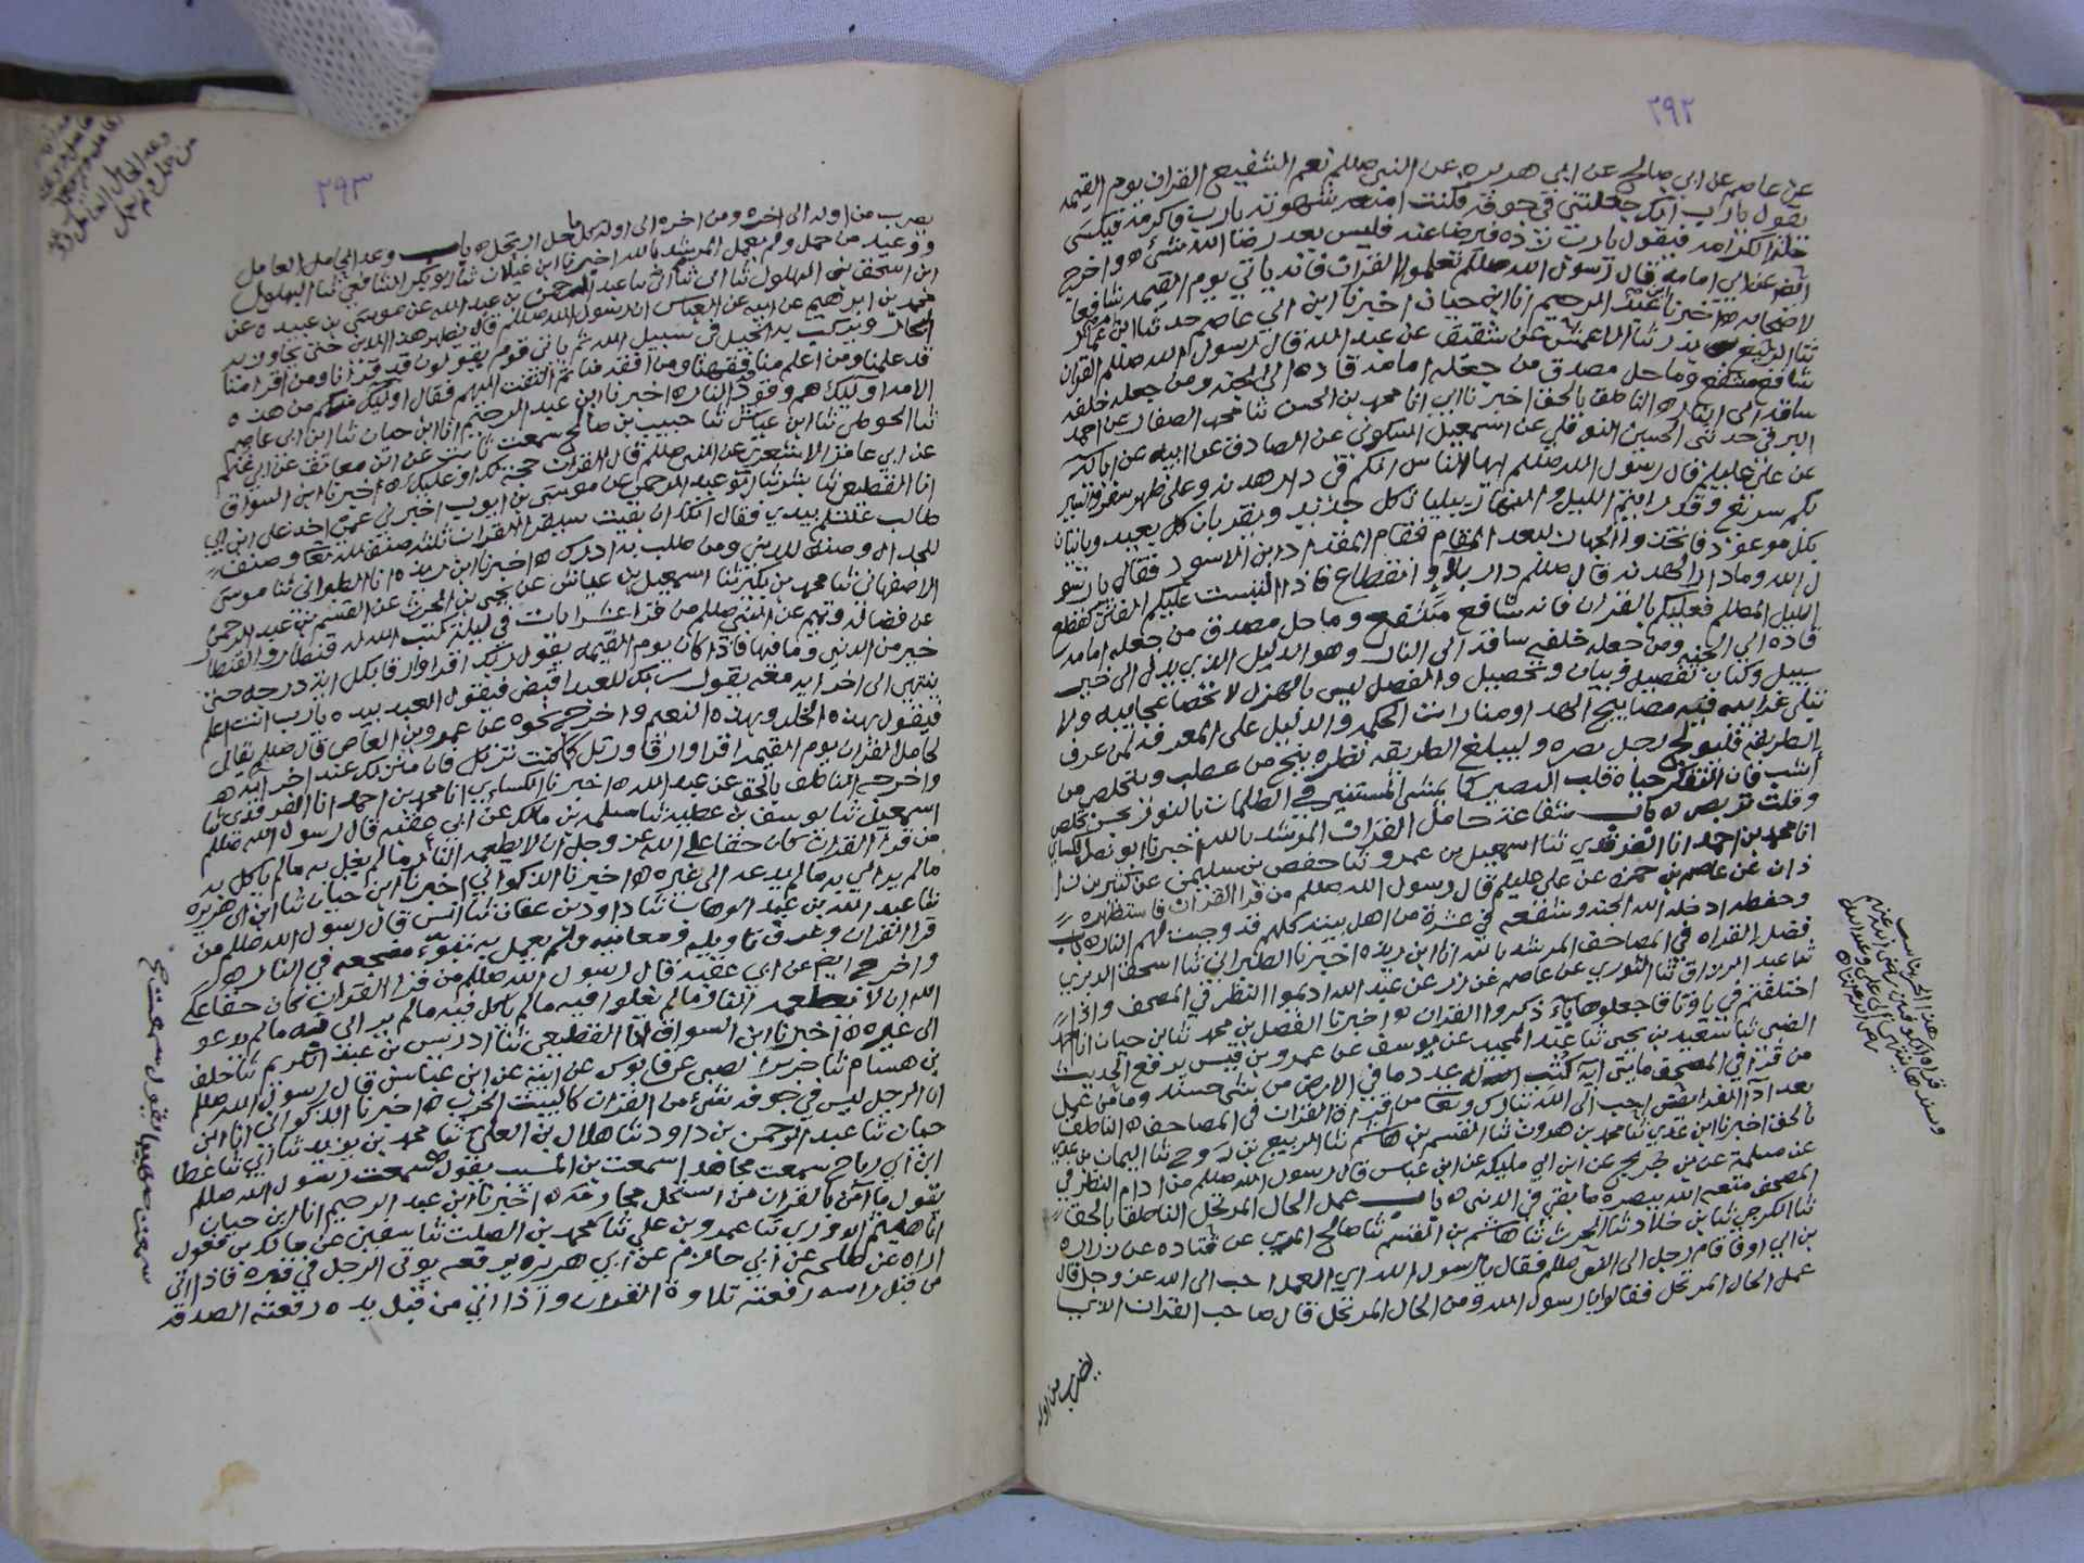 ٢٩٢
عن عاصم عن ابي صالح عن ابي هريره عن النبي صللم نعم الشفيع القران يوم القيمه
يقول يا رب انك جعلتني في جوفه فكنت امنعه شهوته يا رب فاكرمه فيكسى
حلة الكرامه فيقول يا رب زده فيرضا عنه فليس بعد رضا الله شئ ه واخرج
ايضا عن ابي امامه قال رسول الله صللم تعلموا القران فانه ياتي يوم القيمه شافعا
لاصحابه ه اخبرنا ابن عبد الرحيم انا ابن حيان اخبرنا ابن ابي عاصم حدثنا ابن
ثنا الربيع بن بدر ثنا الاعمش عن شقيق عن عبد الله قال رسول الله صللم القران
شافع مشفع وماحل مصدق من جعله امامه قاده الى الجنه ومن جعله خلفه
ساقه الى النار ه الناطق بالحق اخبرنا ابي انا محمد بن الحسن ثنا محمد الصفار عن احمد
البرقي حدثني الحسين النوفلي عن اسمعيل السكوني عن الصادق عن ابيه عن ابائه
عن علي عليلم قال رسول الله صللم ايها الناس انكم في دار هدنه وعلى ظهر سفر والسير
بكم سريع وقد رايتم الليل والنهار يبليان كل جديد ويقربان كل بعيد وياتيان
بكل موعود فاعدوا الجهاز لبعد المقام فقام المقداد ابن الاسود فقال يا رسو
ل الله وما دار الهدنه قال صللم دار بلاء وانقطاع فاذا التبست عليكم الفتن كقطع
الليل المظلم فعليكم بالقران فانه شافع مشفع وماحل مصدق من جعله امامه
قاده الي الجنه ومن جعله خلفه ساقه الى النار وهو الدليل الذي يدل الى خير
سبيل وكتاب تفصيل وبيان وتحصيل والفصل ليس بالهزل لا تحصا عجايبه ولا
تبلى غرايبه فيه مصابيح الهدا ومنارات الحكمه والدليل على المعرفه لمن عرف
الطريقه فليولج رجل بصره وليبلغ الطريقه نظره ينج من عطب ويتخلص من
نشب فان التفكر حياة قلب البصير كما يمشي المستنير في الظلمات بالنور بحسن تخلص
وقلت تربص ه باب شفاعة حامل القران المرشد بالله اخبرنا ابو نصر الكساي
انا محمد بن احمد انا الفرقدي ثنا اسمعيل بن عمرو ثنا حفص بن سليمن عن كثير بن زا
ذان عن عاصم بن حمزه عن علي عليلم قال رسول الله صللم من قرا القران فاستظهره
وحفظه ادخله الله الجنه وشفعه في عشرة من اهل بيته كلهم قد وجبت لهم النار ه باب
فضل القراه في المصاحف المرشد بالله انا ابن ريذه اخبرنا الطبراني ثنا اسحق الدبري
ثنا عبد الرزاق ثنا الثوري عن عاصم عن زر عن عبد الله اديموا النظر في المصحف واذا
اختلفتم في يا وتا فاجعلوها ياء ذكروا القران ه اخبرنا الفضل بن محمد ثنا بن حيان انا احمد
الضبي ثنا سعيد بن يحيى ثنا عبد المجيد عن يوسف عن عمرو بن قيس يرفع الحديث
من قرا في المصحف مايتي ايه كتب الله له بعدد ما في الارض من شئ حسنه وما من عمل
بعد ادا الفرايض احب الى الله تبارك وتعالى من قراة القران في المصاحف ه الناطق
بالحق اخبرنا ابن عدي ثنا محمد بن هرون ثنا القسم بن هاشم ثنا الربيع بن روح ثنا اليمان بن عدي
عن مسلمة عن بن جريج عن ابن ابي مليكه عن ابن عباس قال رسول الله صللم من ادام النظر في
المصحف متعه الله ببصره ما بقي في الدنى ه باب عمل الحال المرتحل الناطق بالحق
ثنا الكرجي ثنا بن خلاد ثنا الحرث ثنا هاشم بن القسم ثنا صالح المري عن قتاده عن زراره
بن ابي اوفا قام رجل الى النبي صللم فقال يا رسول الله اي العمل احب الى الله عز وجل قال
عمل الحال المرتحل فقالوا يا رسول الله ومن الحال المرتحل قال صاحب القران الذي
يضرب من اوله
٢٩٣
يضرب من اوله الى اخره ومن اخره الى اوله كلما حل ارتحل ه باب وعد الحامل العامل
ووعيد من حمل ولم يعمل المرشد بالله اخبرنا ابن غيلان ثنا ابو بكر الشافعي ثنا البهلول
ابن اسحق بن البهلول ثنا ابي ثنا عبد الرحمن بن عبد الله عن موسى بن عبيده عن
محمد بن ابرهيم عن ابيه عن العباس ان رسول الله صللم قال يظهر هذا الدين حتى يجاوز به
البحار ويركب به الخيل في سبيل الله ثم ياتي قوم يقولون قد قرانا ومن اقرا منا
قد علمنا ومن اعلم منا فقهنا ومن افقه منا ثم التفت اليهم فقال اوليك منكم من هذه
الامه اوليك هم وقود النار ه اخبرنا ابن عبد الرحيم انا ابن حيان ثنا ابن ابي عاصم
ثنا الحوطي ثنا ابن عياش ثنا حبيب بن صالح سمعت ثابت عن ابن معانق عن ابن غنم
عن ابي عامر الاشعري عن النبي صللم قال القران حجة لك او عليك ه اخبرنا ابن السواق
انا القطيعي ثنا بشر ثنا ابو عبد الرحمن عن موسى بن ايوب اخبرني عمي اخذ على ابن ابي
طالب عليلم بيدي فقال انك ان بقيت سيقرا القران ثلاثة صنف لله تعا وصنف
للجدال وصنف للدنى ومن طلب به ادرك ه اخبرنا ابن ريذه انا الطبراني ثنا موسى
الاصفهاني ثنا محمد بن بكير ثنا اسمعيل بن عياش عن يحيى بن الحرث عن القسم بن عبد الرحمن
عن فضاله وتميم عن النبي صللم من قرا عشر ايات في ليلة كتب الله له قنطار والقنطار
خير من الدنى وما فيها فاذا كان يوم القيمه يقول ربك اقرا وارقا بكل اية درجه حتى
ينتهي الى اخر ايه معه يقول ربك للعبد اقبض فيقول العبد بيده يا رب انت اعلم
فيقول بهذه الخلد وبهذه النعيم واخرج نحوه عن عمرو بن العاص قال صللم يقال
لحامل القران يوم القيمه اقرا وارقا ورتل كما كنت ترتل فان منزلك عند اخر ايه ه
واخرجه الناطق بالحق عن عبد الله ه اخبرنا الكساي انا محمد بن احمد انا الفرقدي ثنا
اسمعيل ثنا يوسف بن عطيه ثنا مسلمه بن مالك عن ابي عقبه قال رسول الله صللم
من قرا القران كان حقا على الله عز وجل ان لا يطعمه النار ما لم يغل به ما لم ياكل به
ما لم يراي به ما لم يدعه الى غيره ه اخبرنا الذكواني اخبرنا ابن حيان ثنا ابن ابي هريره
ثنا عبد الله بن عبد الوهاب ثنا داود بن عفان ثنا انس قال رسول الله صللم من
قرا القران وعرف تاويله ومعانيه ولم يعمل به تبوء مضجعه في النار ه
واخرج ايضا عن ابي عقبه قال رسول الله صللم من قرا القران كان حقا على
الله ان لا تطعمه النار ما لم يغلوا فيه ما لم ياكل فيه ما لم يراي فيه ما لم يدعو
الى غيره ه اخبرنا ابن السواق انا القطيعي ثنا ادريس بن عبد الكريم ثنا خلف
بن هشام ثنا جرير الضبي عن قابوس عن ابيه عن ابن عباس قال رسول الله صللم
ان الرجل ليس في جوفه شئ من القران كالبيت الخرب ه اخبرنا الذكواني انا ابن
حيان ثنا عبد الرحمن بن داود ثنا هلال بن العلا ثنا محمد بن يزيد ثنا ابي ثنا عطا
ابن ابي رباح سمعت مجاهدا سمعت بن المسيب يقول سمعت رسول الله صللم
يقول ما امن بالقران من استحل محارمه ه اخبرنا ابن عبد الرحيم انا ابن حيان
انا هيثم الدوري ثنا عمرو بن علي ثنا محمد بن الصلت ثنا سفين عن مالك بن مغول
اراه عن طلحه عن ابي حازم عن ابي هريره يرفعه يوتى الرجل في قبره فاذا اتى
من قبل راسه رفعته تلاوة القران واذا اتي من قبل يده رفعته الصدقه
سمعت صهيبا يقول سمعت صح